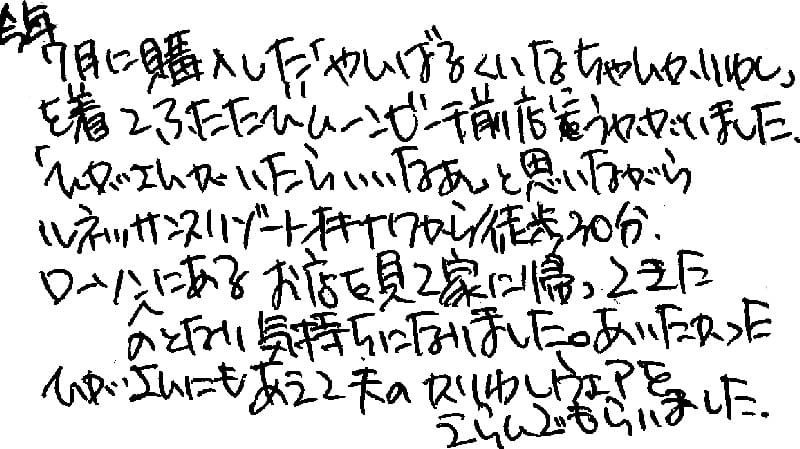 今年
7月に購入した「やんばるくいなちゃんかりゆし」
を着て、ふたたびムーンビーチ前店に向うかがいました。
「ひがさんがいたらいいなあ」と思いながら
ルネッサンスリゾートオキナワから徒歩30分。
ローソンにある お店を見て家に帰ってきた
のとなり 気持ちになりました。あいたかった
ひがさんにもあえて夫のかりゆしウェアを
えらんでもらいました。